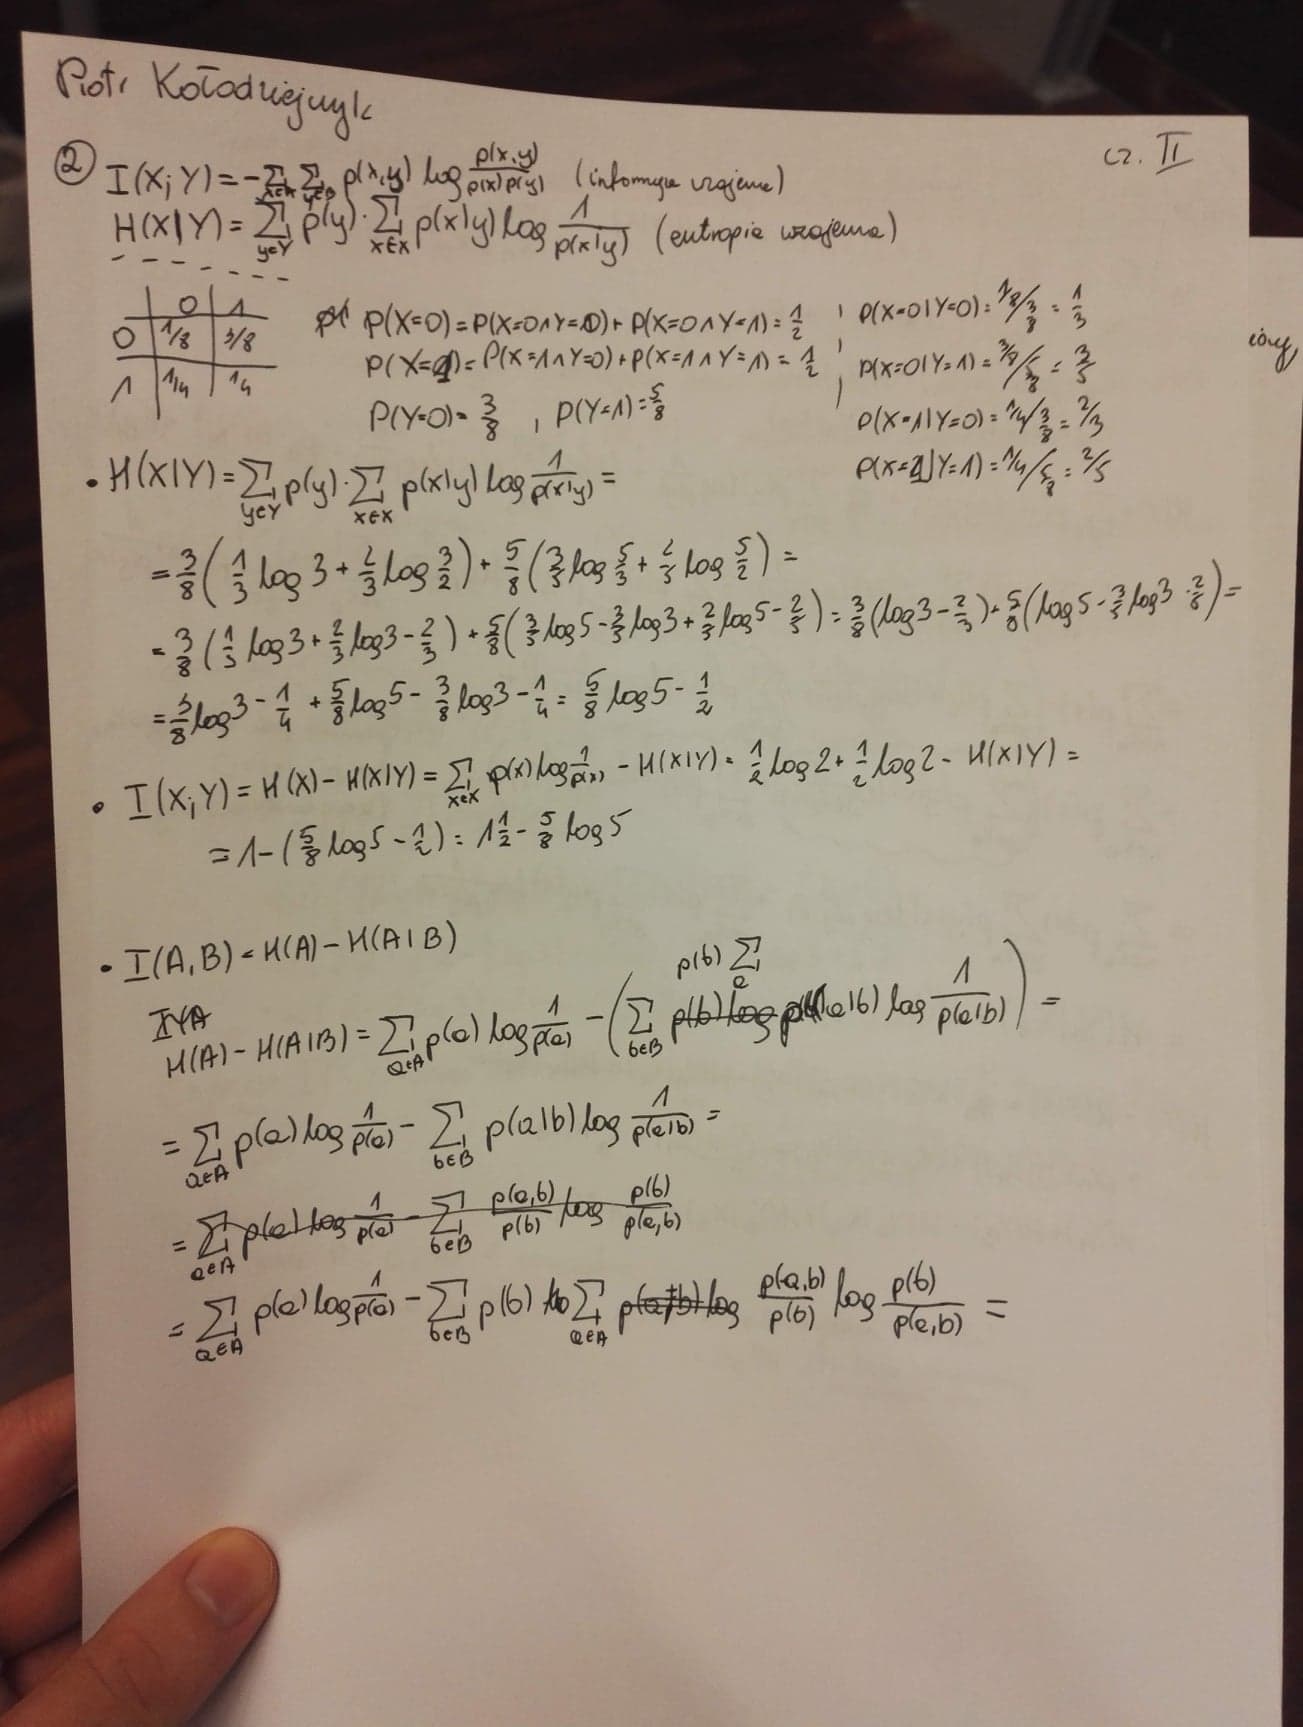 Piotr Kołodziejczyk
cz. II
② I(X;Y) = -∑x∈X ∑y∈Y p(x,y) log p(x,y)/p(x)p(y) (informacja wzajemna)
H(X|Y) = ∑y∈Y p(y)·∑x∈X p(x|y) log 1/p(x|y) (entropia wzajemna)
0 1
0 1/8 3/8
1 1/4 1/4
P(X=0) = P(X=0∧Y=0) + P(X=0∧Y=1) = 1/2
P(X=1) = P(X=1∧Y=0) + P(X=1∧Y=1) = 1/2
P(Y=0) = 3/8 , P(Y=1) = 5/8
P(X=0|Y=0) = 1/8/3/8 = 1/3
P(X=0|Y=1) = 3/8/5/8 = 3/5
P(X=1|Y=0) = 1/4/3/8 = 2/3
P(X=1|Y=1) = 1/4/5/8 = 2/5
• H(X|Y) = ∑y∈Y p(y)·∑x∈X p(x|y) log 1/p(x|y) =
= 3/8 (1/3 log 3 + 2/3 log 3/2) + 5/8 (3/5 log 5/3 + 2/5 log 5/2) =
= 3/8 (1/3 log 3 + 2/3 log 3 - 2/3) + 5/8 (3/5 log 5 - 3/5 log 3 + 2/5 log 5 - 2/5) = 3/8 (log 3 - 2/3) + 5/8 (log 5 - 3/5 log 3 - 2/5) =
= 3/8 log 3 - 1/4 + 5/8 log 5 - 3/8 log 3 - 1/4 = 5/8 log 5 - 1/2
• I(X;Y) = H(X) - H(X|Y) = ∑x∈X p(x) log 1/p(x) - H(X|Y) = 1/2 log 2 + 1/2 log 2 - H(X|Y) =
= 1 - (5/8 log 5 - 1/2) = 1 1/2 - 5/8 log 5
• I(A,B) = H(A) - H(A|B)
H(A) - H(A|B) = ∑a∈A p(a) log 1/p(a) - (∑b∈B p(b) ∑a p(a|b) log 1/p(a|b)) =
= ∑a∈A p(a) log 1/p(a) - ∑b∈B p(a|b) log 1/p(a|b) =
= ∑a∈A p(a) log 1/p(a) - ∑b∈B p(a,b)/p(b) log p(b)/p(a,b)
= ∑a∈A p(a) log 1/p(a) - ∑b∈B p(b) ∑a∈A p(a,b)/p(b) log p(b)/p(a,b) =